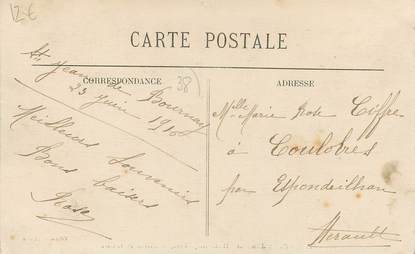 12€
CARTE POSTALE
CORRESPONDANCE
38)
ADRESSE
St Jean de Bournay
23 Juin 1916
Meilleurs Souvenirs
Bons baisers
Rosa
Mlle Marie Rose Ciffre
à Coulobres
par Espondeilhan
Herault